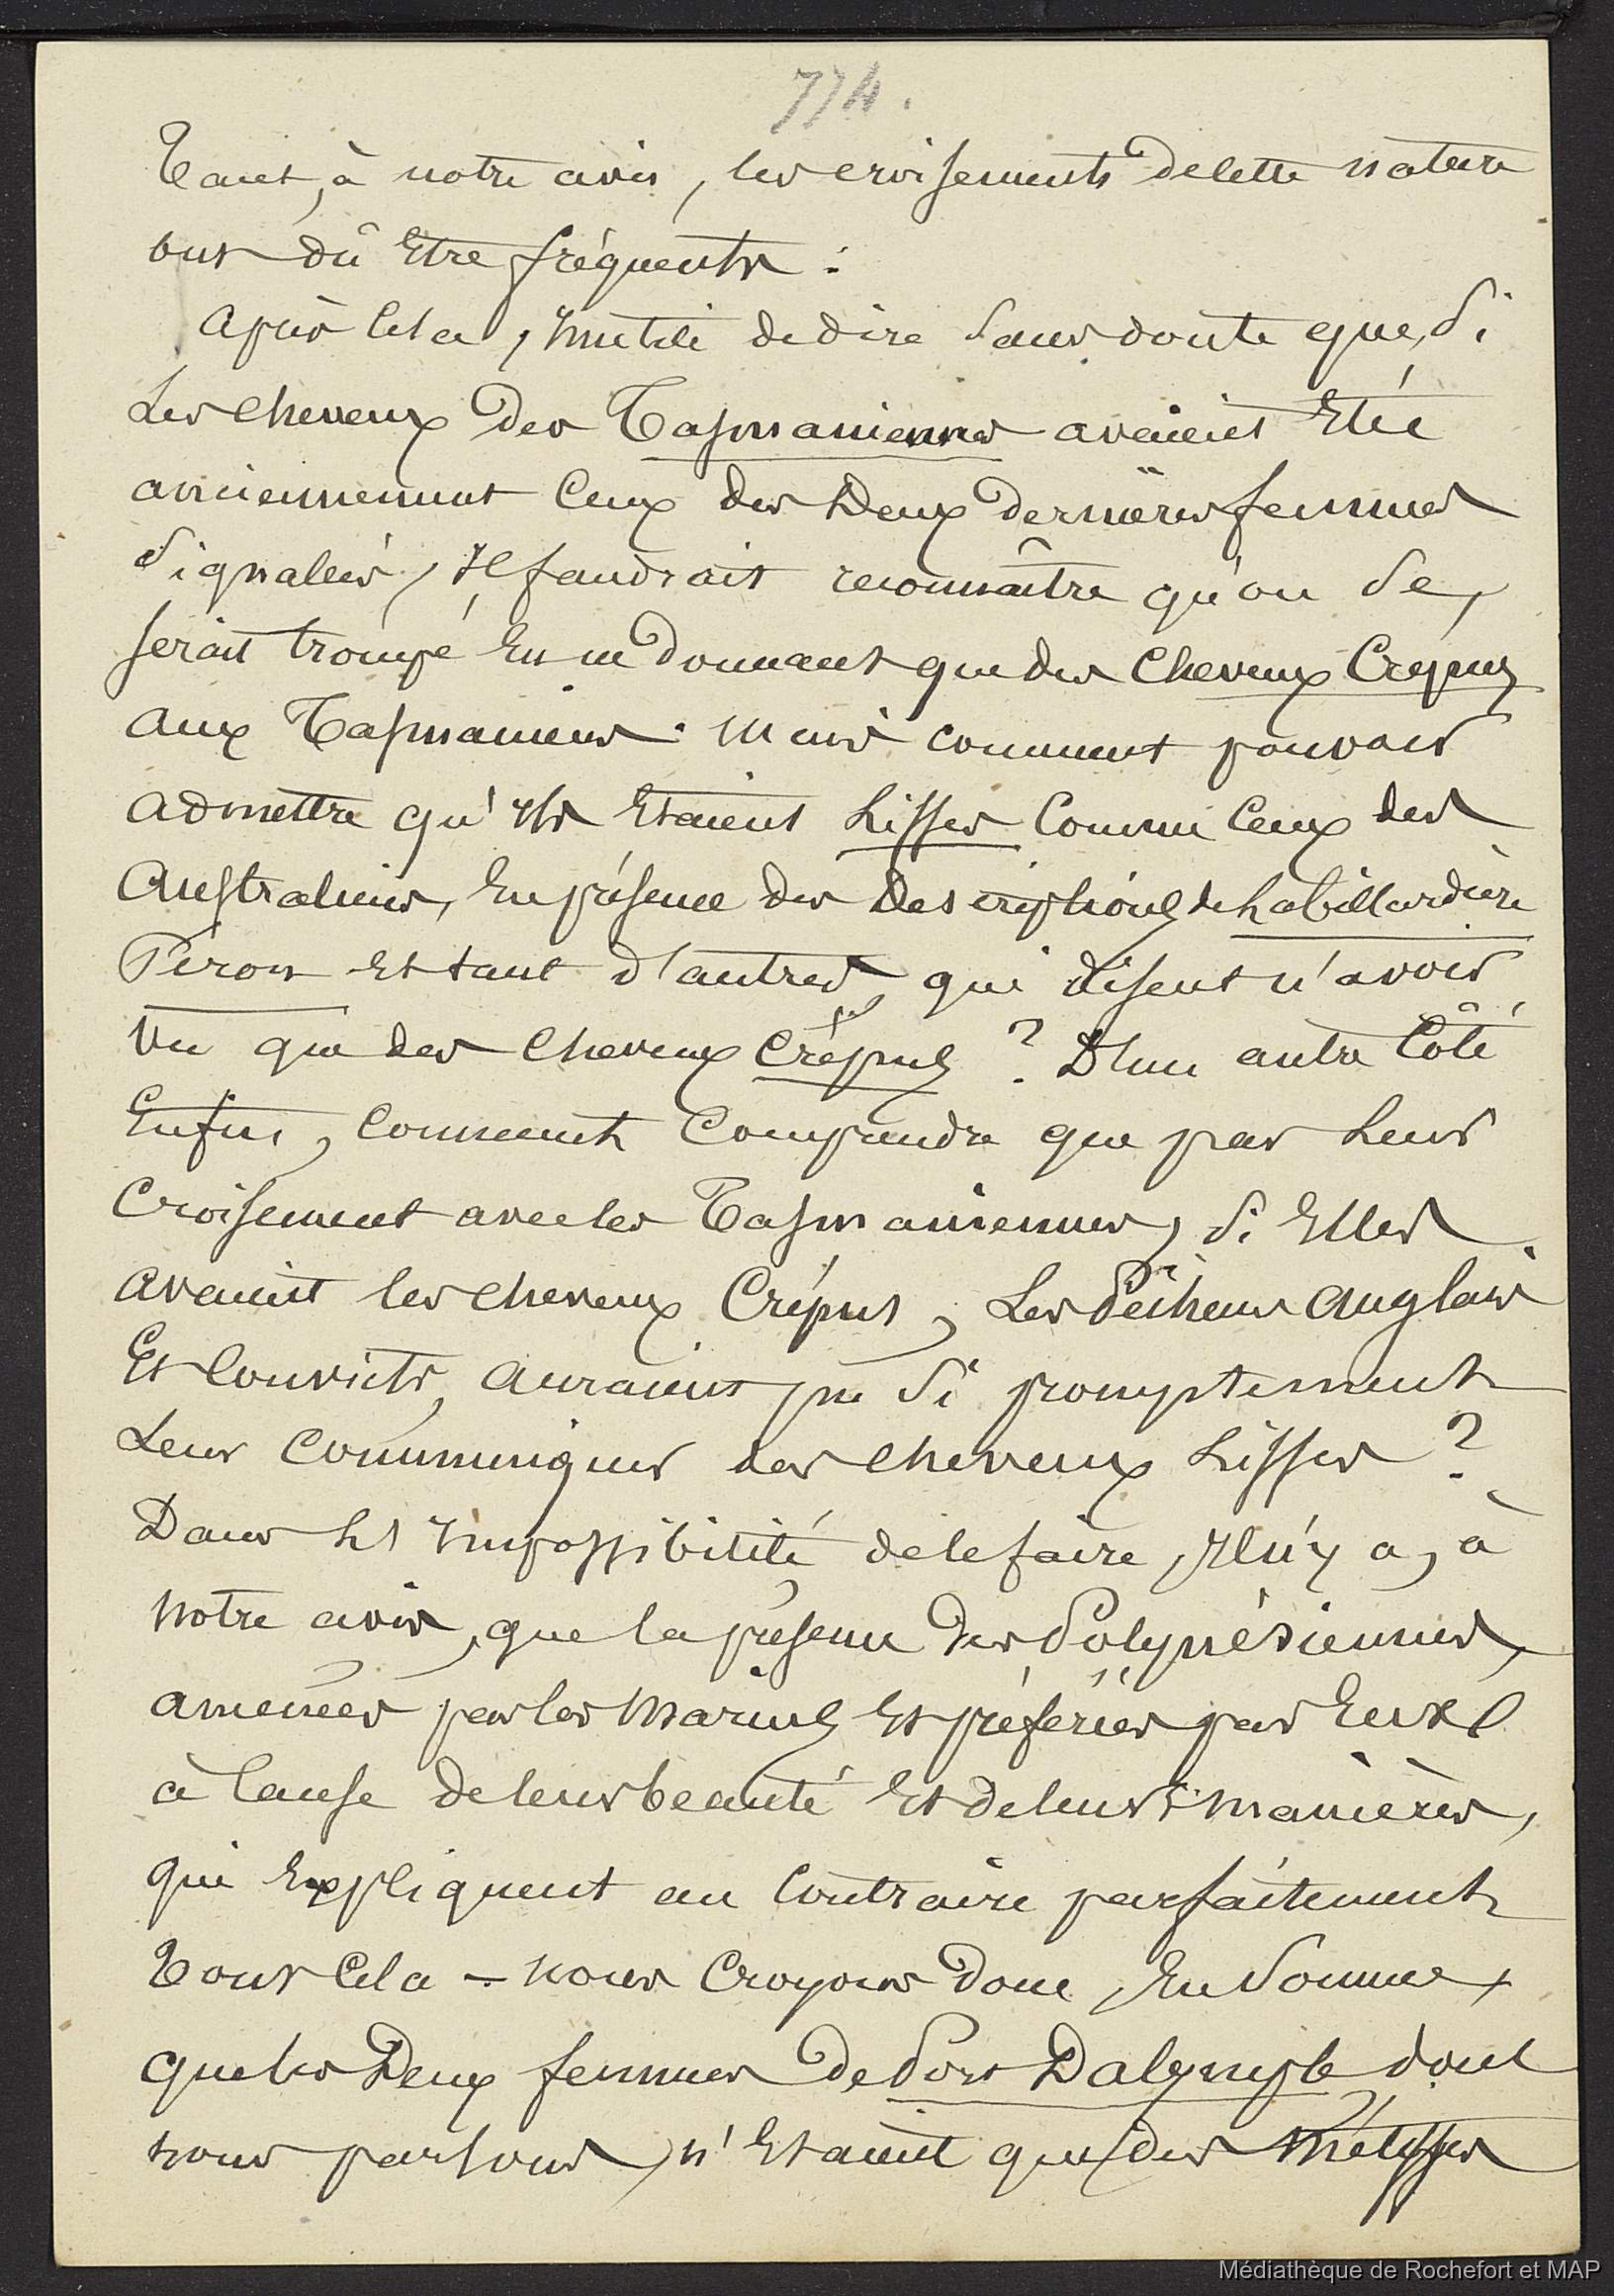 774.
Tant, à notre avis, les croisements de cette nature
ont dû Etre fréquents :
Après Cela, Inutile de dire sans doute que, si
Les Cheveux Des Tasmaniennes avaient Eté
anciennement Ceux des Deux Dernières femmes
Signalées, Il faudrait reconnaître qu'on se,
serait trompé En ne Donnant que des Cheveux Crépus
aux Tasmaniens. Mais comment pouvoir
admettre qu'Ils Etaient Lisses Comme Ceux des
Australiens, En présence des Descriptions de Labillardière
Péron Et tant d'autres, qui disent n'avoir
Vu que des Cheveux Crépus ? D'un autre Côté
Enfin, Comment Comprendre que par Leur
Croisement avec les Tasmaniennes, si Elles
avaient les cheveux Crépus, Les Pêcheurs Anglais
Et Convicts, auraient pu si promptement
Leur Communiquer des cheveux Lisses ?
Dans L'Impossibilité de le faire, Il n'y a, à
notre avis, que la présence des Polynésiennes,
amenées par les Marins Et préférées par Eux
à Cause de leur beauté Et de leurs manières,
qui Expliquent au Contraire parfaitement
Tout Cela - nous Croyons Donc, En Somme,
que les Deux femmes de Port Dalrymple dont
nous parlons, n'Etaient que des Métisses
Médiathèque de Rochefort et MAP